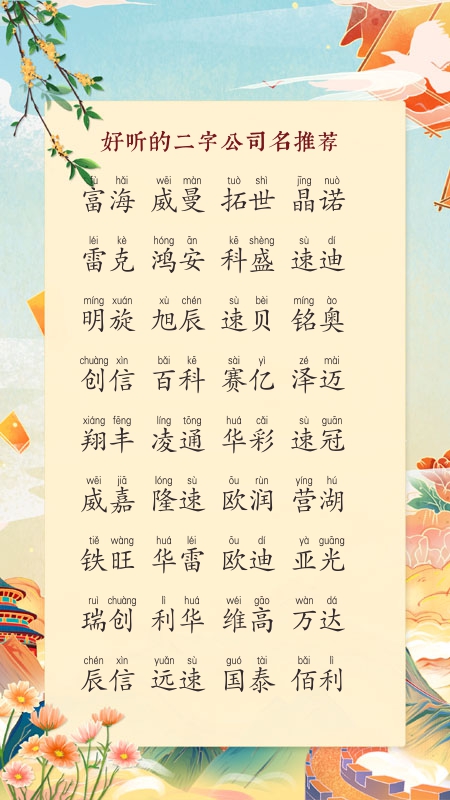 好听的二字公司名推荐
fù hǎi wēi màn tuò shì jīng nuò
富海 威曼 拓世 晶诺
léi kè hóng ān kē shèng sù dí
雷克 鸿安 科盛 速迪
míng xuán xù chén sù bèi míng ào
明旋 旭辰 速贝 铭奥
chuàng xìn bǎi kē sài yì zé mài
创信 百科 赛亿 泽迈
xiáng fēng líng tōng huá cǎi sù guān
翔丰 凌通 华彩 速冠
wēi jiā lóng sù ōu rùn yíng hú
威嘉 隆速 欧润 营湖
tiě wàng huá léi ōu dí yà guāng
铁旺 华雷 欧迪 亚光
ruì chuàng lì huá wéi gāo wàn dá
瑞创 利华 维高 万达
chén xìn yuǎn sù guó tài bǎi lì
辰信 远速 国泰 佰利